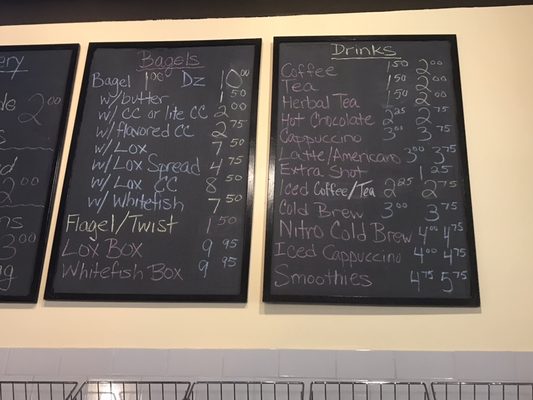 ery
de 2.00
d
2.00
ns
3.00
ag
Bagels
Bagel 1.00 Dz 10.00
w/butter 1.50
w/ CC or lite CC 2.00
w/flavored CC 2.75
w/ Lox 7.50
w/ Lox Spread 4.75
w/ Lox CC 8.50
w/ Whitefish 7.50
Flagel/Twist 1.50
Lox Box 9.95
Whitefish Box 9.95
Drinks
Coffee 1.50 2.00
Tea 1.50 2.00
Herbal Tea 1.50 2.00
Hot Chocolate 2.25 2.75
Cappuccino 3.00 3.75
Latte/Americano 3.00 3.75
Extra Shot 1.25
Iced Coffee/Tea 2.25 2.75
Cold Brew 3.00 3.75
Nitro Cold Brew 4.00 4.75
Iced Cappuccino 4.00 4.75
Smoothies 4.75 5.75